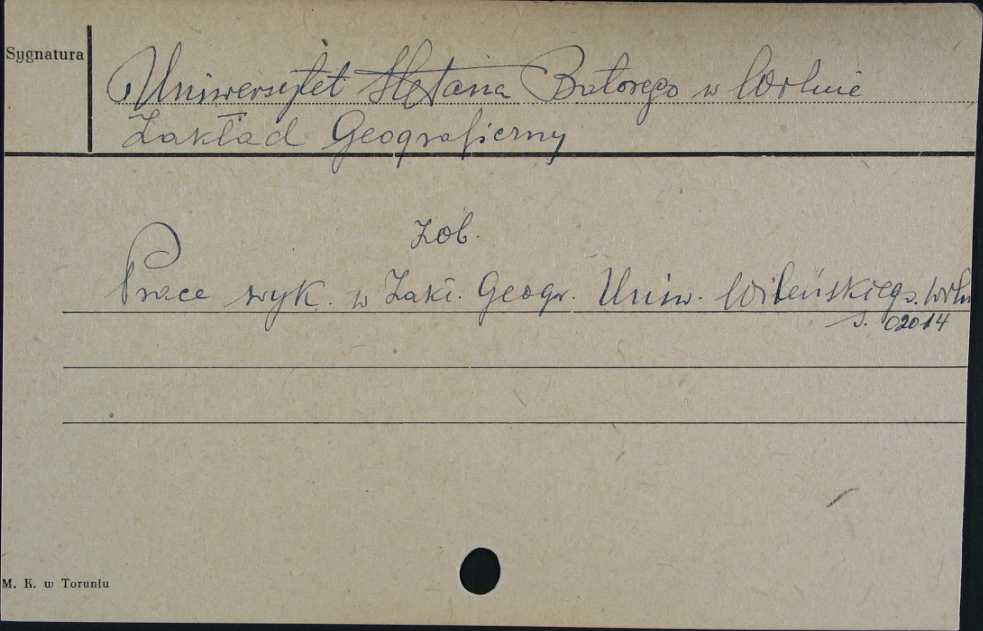 Sygnatura
Uniwersytet Stefana Batorego w Wilnie
Zakład Geograficzny
Zob.
Prace wyk. w Zakł. Geogr. Uniw. Wileńskiego. Wiln
s. 02014
M. K. w Toruniu